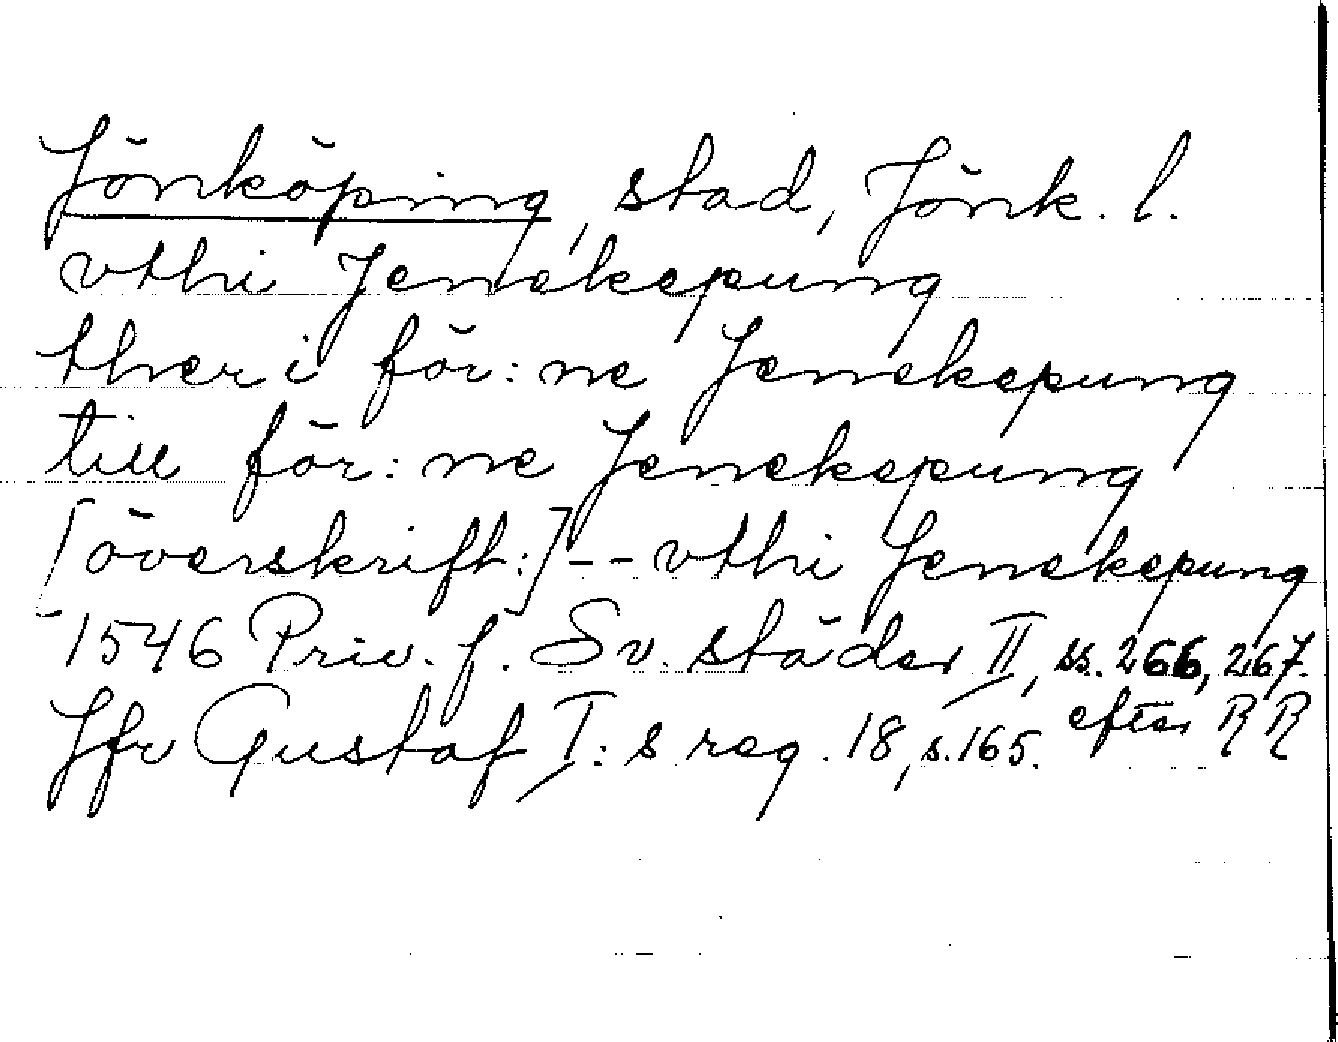 Jönköping, stad, Jönk. l.
vthi Jenekepung
ther i för:ne Jenekepung
till för:ne Jenekepung
[överskrift:] -- vthi Jenekepung
1546 Priv. f. Sv. städer II, ss. 266, 267.
Jfr Gustaf I:s reg. 18, s. 165. efter RR